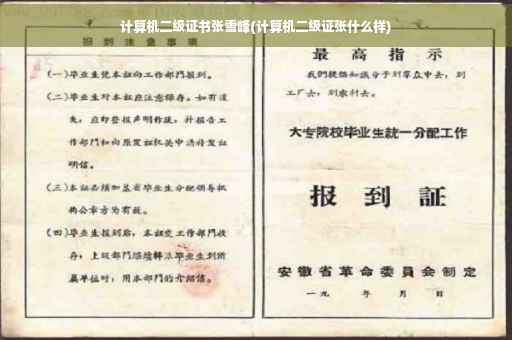 计算机二级证书张雪峰(计算机二级证张什么样)
报到注意事项
(一)毕业生凭本证向工作部门报到。
(二)毕业生对本证应注意保存。如有遗
失，应即登报声明作废，并报告工
作部门和向原发证机关申请补发证
明信。
(三)本证必须加盖省毕业生分配领导机
构公章方为有效。
(四)毕业生报到后，本证交工作部门收
存；上级部门继续转派毕业生到所
属单位时，用本部门的介绍信。
最高指示
我们提倡知识分子到群众中去，到
工厂去，到农村去。
大专院校毕业生统一分配工作
报到証
安徽省革命委員会制定
一九 年 月 日